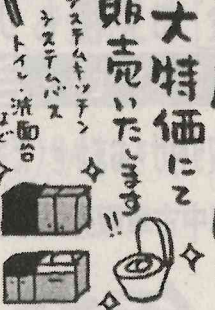 大特価にて
販売いたします!!
システムキッチン
システムバス
トイレ・洗面台
など